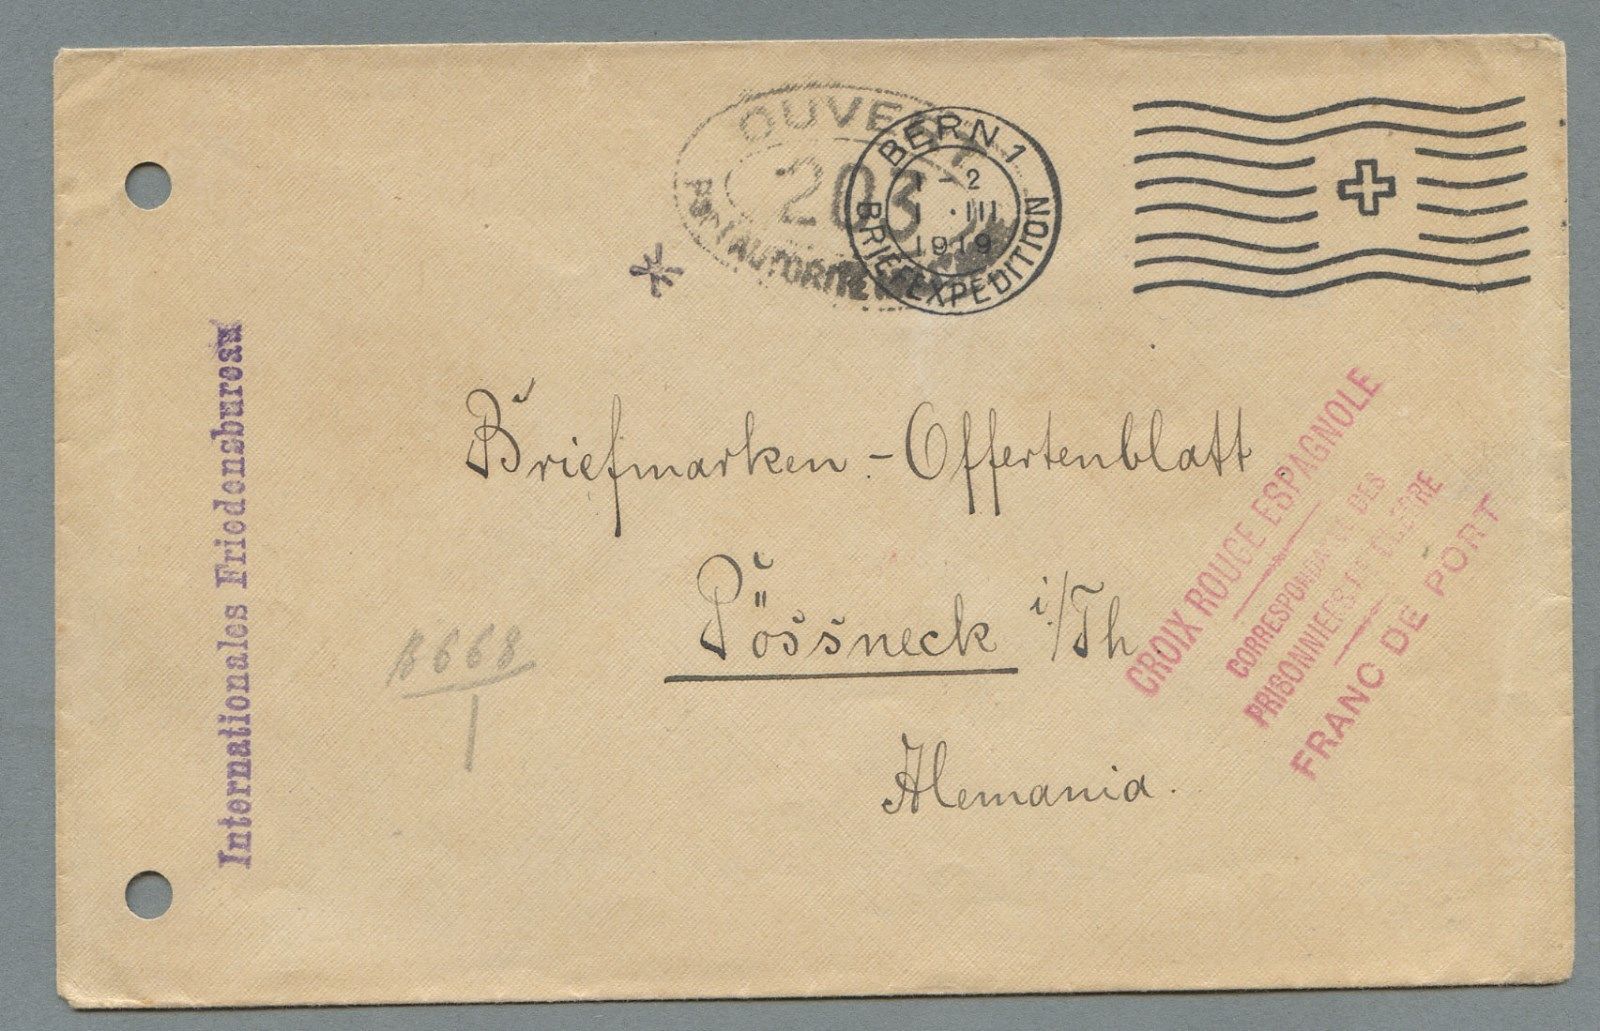 OUVERT
203
PAR L'AUTORITÉ
BERN 1
1-2
1.III
1919
BRIEFEXPEDITION
Internationales Friedensbureau
Briefmarken-Offertenblatt
Pössneck i/Th.
Alemania.
CROIX ROUGE ESPAGNOLE
CORRESPONDANCE DES
PRISONNIERS DE GUERRE
FRANC DE PORT